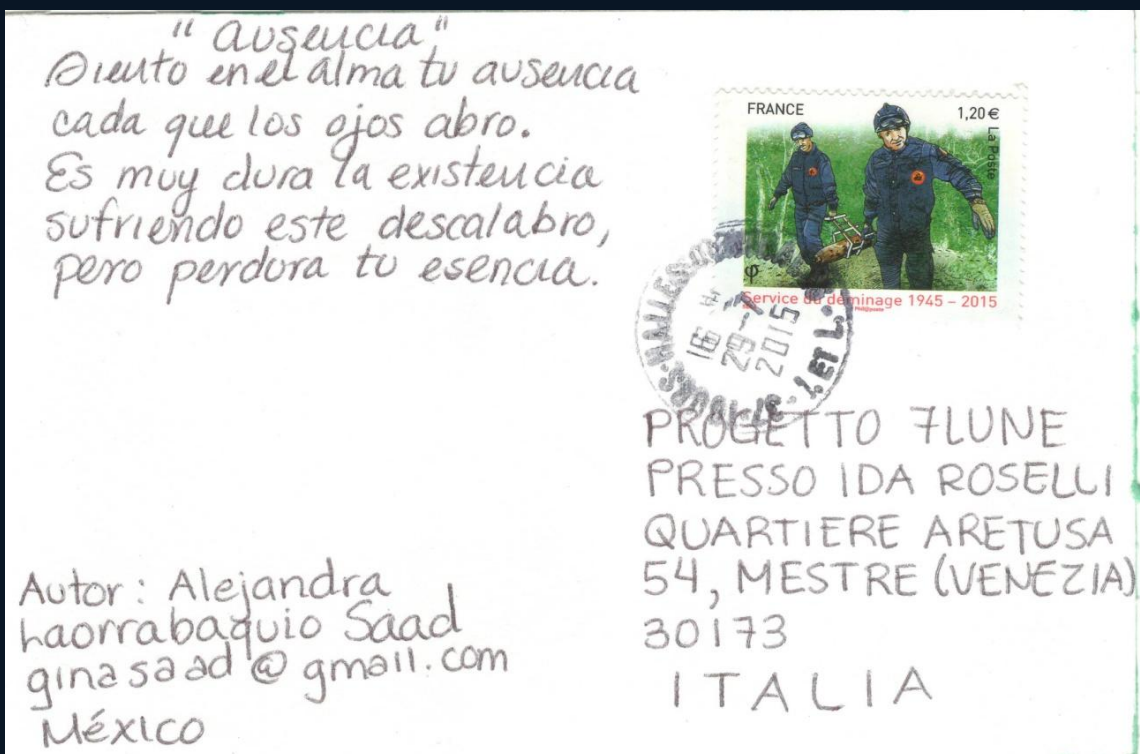 "Ausencia"
Siento en el alma tu ausencia
cada que los ojos abro.
Es muy dura la existencia
sufriendo este descalabro,
pero perdura tu esencia.
FRANCE
1,20 €
La Poste
φ
Service du déminage 1945 – 2015
TOURS-HALLES
16 H
29-
2015
37-I. ET L.
PROGETTO 7LUNE
PRESSO IDA ROSELLI
QUARTIERE ARETUSA
54, MESTRE (VENEZIA)
30173
ITALIA
Autor: Alejandra
Laorrabaquio Saad
ginasaad@gmail.com
México